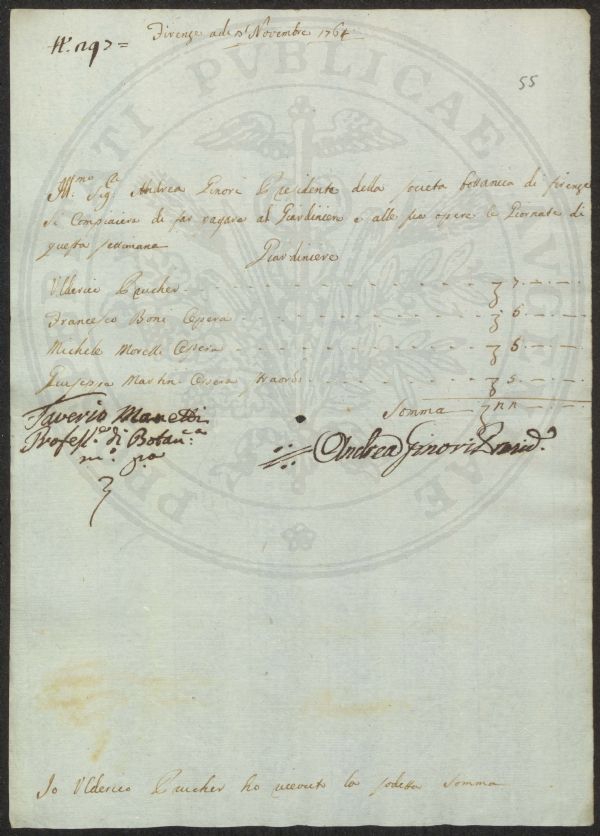 N.º 297=
Firenze adi 3 Novembre 1764
55
Ill.mo Sig.r Andrea Ginori Presidente della società bottanica di firenze
si Compiacera di far pagare al Giardiniere e alle sue opere le Giornate di
questa settimana
Giardiniere
Ulderico Prucher
Francesco Boni Opera
Michele Morelli Opera
Giuseppe Martini Opera straord
Somma
Saverio Manetti
Profess.e di Botan.ca
m.o p.a
Andrea Ginori Presid.e
Io Ulderico Prucher ho ricevuto la sodetta Somma
PUBLICAE